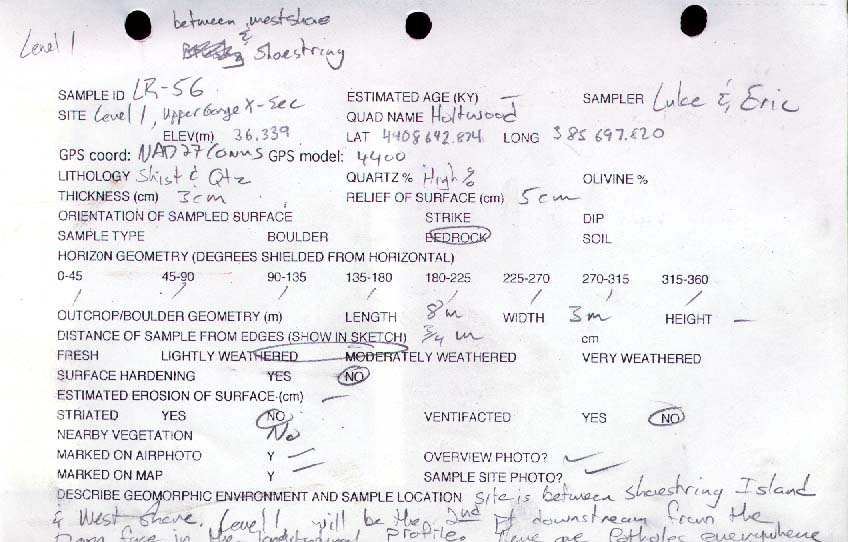 Level 1
between west shore
& Shoestring
SAMPLE ID LR-56 ESTIMATED AGE (KY) — SAMPLER Luke & Eric
SITE Level 1, Upper Gorge X-Sec QUAD NAME Holtwood
ELEV(m) 36.339 LAT 4408642.874 LONG 385697.820
GPS coord: NAD27 Conus GPS model: 4400
LITHOLOGY Shist & Qtz QUARTZ % High % OLIVINE %
THICKNESS (cm) 3cm RELIEF OF SURFACE (cm) 5cm
ORIENTATION OF SAMPLED SURFACE STRIKE DIP
SAMPLE TYPE BOULDER BEDROCK SOIL
HORIZON GEOMETRY (DEGREES SHIELDED FROM HORIZONTAL)
0-45 45-90 90-135 135-180 180-225 225-270 270-315 315-360
/ / / / / / / /
OUTCROP/BOULDER GEOMETRY (m) LENGTH 8m WIDTH 3m HEIGHT —
DISTANCE OF SAMPLE FROM EDGES (SHOW IN SKETCH) 3/4 m cm
FRESH LIGHTLY WEATHERED MODERATELY WEATHERED VERY WEATHERED
SURFACE HARDENING YES NO
ESTIMATED EROSION OF SURFACE (cm) —
STRIATED YES NO VENTIFACTED YES NO
NEARBY VEGETATION No
MARKED ON AIRPHOTO Y — OVERVIEW PHOTO? ✓
MARKED ON MAP Y — SAMPLE SITE PHOTO? ✓
DESCRIBE GEOMORPHIC ENVIRONMENT AND SAMPLE LOCATION Site is between Shoestring Island
& West Shore. Level 1 will be the 2nd pt downstream from the
Dam face in the longitudinal profile. There are Potholes everywhere